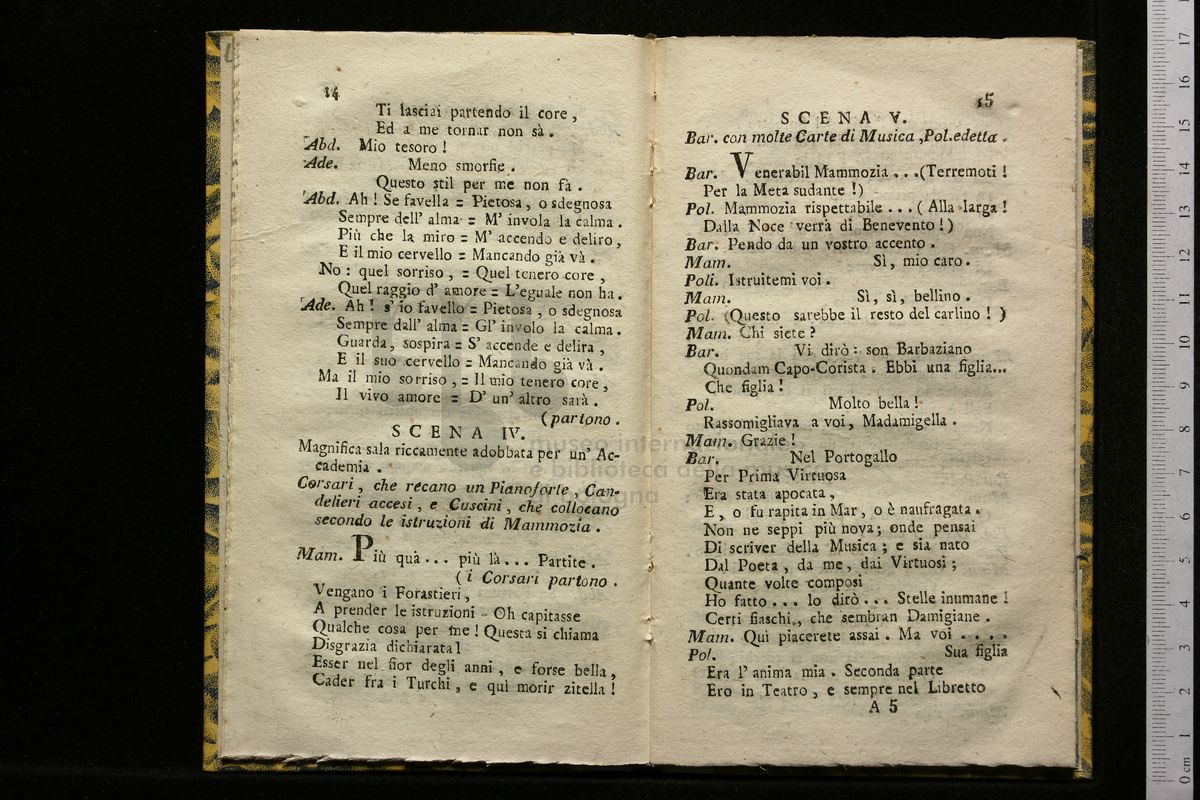 14
Ti lasciai partendo il core ,
Ed a me tornar non sà .
Abd. Mio tesoro !
Ade. Meno smorfie .
Questo stil per me non fà .
Abd. Ah ! Se favella = Pietosa , o sdegnosa
Sempre dell' alma = M' invola la calma .
Più che la miro = M' accendo e deliro ,
E il mio cervello = Mancando già và .
No : quel sorriso , = Quel tenero core ,
Quel raggio d' amore = L'eguale non ha .
Ade. Ah ! s' io favello = Pietosa , o sdegnosa
Sempre dall' alma = Gl' involo la calma .
Guarda , sospira = S' accende e delira ,
E il suo cervello = Mancando già và .
Ma il mio sorriso , = Il mio tenero core ,
Il vivo amore = D' un' altro sarà .
(partono .
SCENA IV.
Magnifica sala riccamente adobbata per un' Ac-
cademia .
Corsari , che recano un Pianoforte , Can-
delieri accesi , e Cuscini , che collocano
secondo le istruzioni di Mammozia .
Mam. Più quà ... più là ... Partite .
( i Corsari partono .
Vengano i Forastieri ,
A prender le istruzioni - Oh capitasse
Qualche cosa per me ! Questa si chiama
Disgrazia dichiarata !
Esser nel fior degli anni , e forse bella ,
Cader fra i Turchi , e quì morir zitella !
15
SCENA V.
Bar. con molte Carte di Musica , Pol. e detta .
Bar. Venerabil Mammozia ... (Terremoti !
Per la Meta sudante !)
Pol. Mammozia rispettabile ... ( Alla larga !
Dalla Noce verrà di Benevento !)
Bar. Pendo da un vostro accento .
Mam. Sì, mio caro .
Poli. Istruitemi voi .
Mam. Sì, sì, bellino .
Pol. (Questo sarebbe il resto del carlino ! )
Mam. Chi siete ?
Bar. Vi dirò : son Barbaziano
Quondam Capo-Corista . Ebbi una figlia...
Che figlia !
Pol. Molto bella !
Rassomigliava a voi , Madamigella .
Mam. Grazie !
Bar. Nel Portogallo
Per Prima Virtuosa
Era stata apocata ,
E , o fu rapita in Mar , o è naufragata .
Non ne seppi più nova ; onde pensai
Di scriver della Musica ; e sia nato
Dal Poeta , da me , dai Virtuosi ;
Quante volte composi
Ho fatto ... lo dirò ... Stelle inumane !
Certi fiaschi , che sembran Damigiane .
Mam. Quì piacerete assai . Ma voi ....
Pol. Sua figlia
Era l' anima mia . Seconda parte
Ero in Teatro , e sempre nel Libretto
A 5
museo internazionale
e biblioteca della musica
di bologna
0 cm 1 2 3 4 5 6 7 8 9 10 11 12 13 14 15 16 17